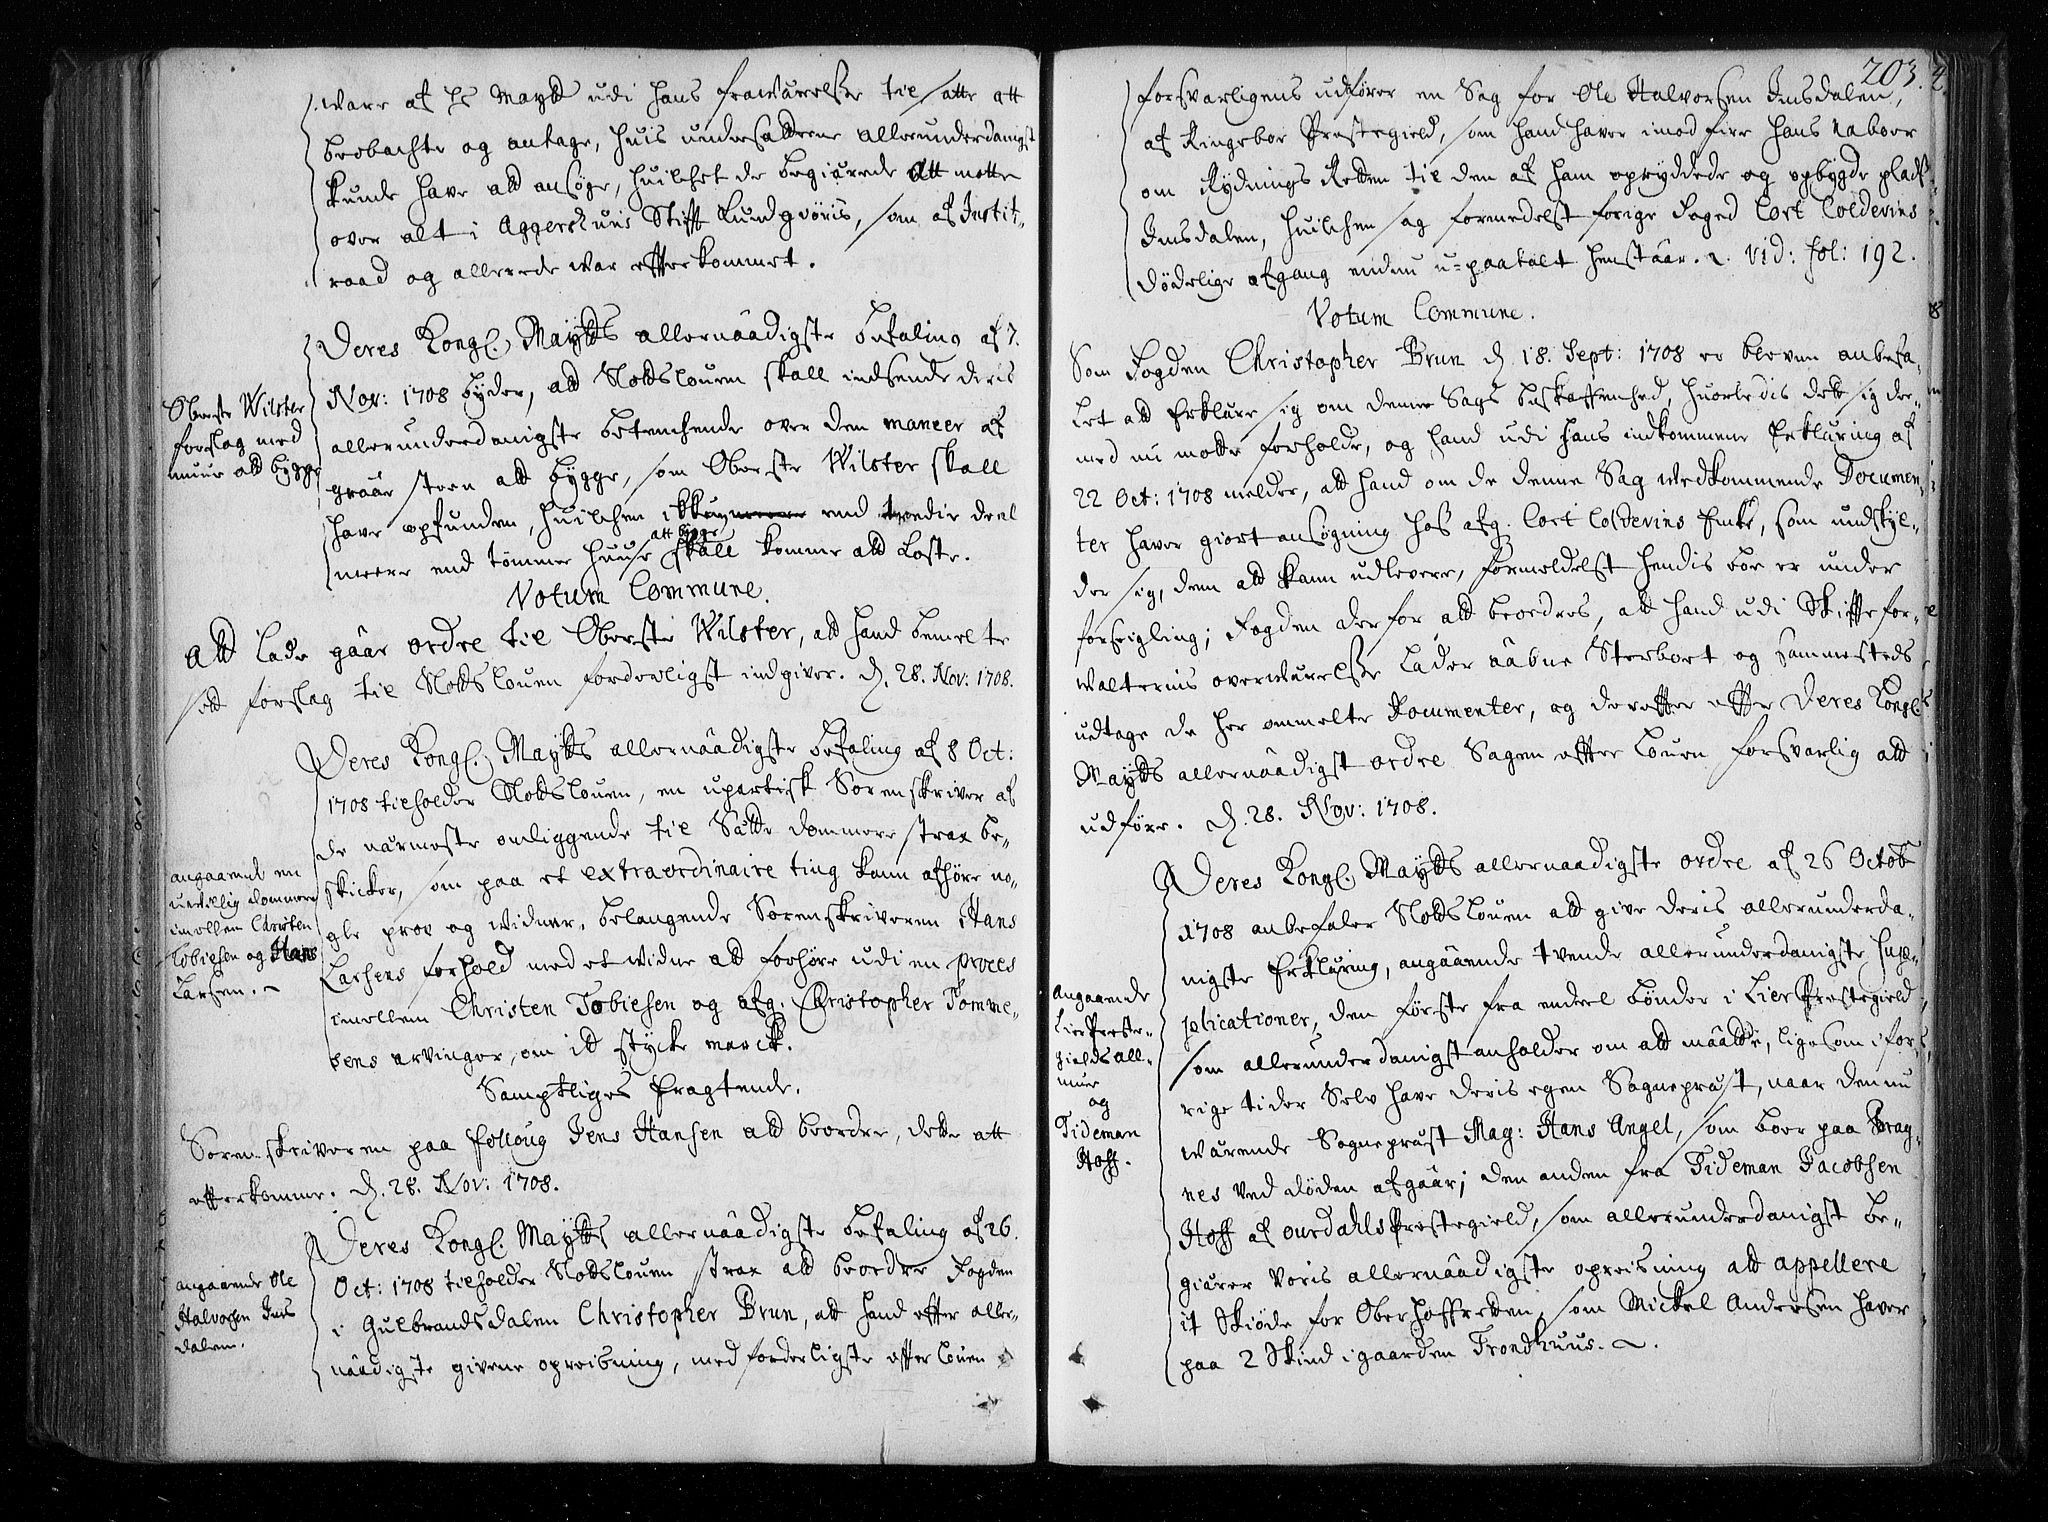 være af hs Maytt udi hans fraværelse til sætte att
beobachte og antage, huis undersaatterne allerunderdanigst
kunde have att ansøge, huilchet de begiærede att motte
over alt i Aggershuus Stifft kundgiøris, som af Justit-
raad og allerede war efterkommet.
Deres Kongl. Maytts allernaadigste befaling af 7.
Nov: 1708 byder, att Slotsloven skall indsende deris
allerunderdanigste betenchende over den maneer af
graaesteen att bygge, som Oberste Wilster skall
have opfunden, huilchen ikke end tredie deel
att bygge
meere end tømmer huuse skall komme att koste.
Oberste Wilster
forslag med
muur att bygge
Votum Commune.
Att lade gaae ordre til Oberste Wilster, att hand bemelte
sitt forslag til Slotsloven forderligst indgiver. d. 28. Nov: 1708.
Deres Kongl. Maytts allernaadigste befaling af 8 Oct:
1708 tilholder Slotsloven, en upartisk Sorenskriver af
de nærmeste omliggende til Sætte dommere strax be-
skicker, som paa et extraordinaire ting kann afhøre no-
gle prov og widner, belangende Sorenskriveren Hans
Larsens forhold med et widne att forhøre udi en proces
imellem Christen Tobiesen og afg. Christopher Tomme-
sens arvinger, om it støcke march.
angaaende en
uvillig dommere
imellem Christen
Tobiesen og Hans
Larsen.
Samptliges Eragtende.
Sorenskriveren paa Folloug Jens Hansen att beordre, dette att
efterkomme. d. 28. Nov: 1708.
Deres Kongl. Maytts allernaadigste befaling af 26.
Oct: 1708 tilholder Slotsloven strax att beordre Fogden
i Gulbrandsdalen Christopher Brun, att hand efter aller-
naadigste givene opreisning, med forderligste efter Loven
angaaende Ole
Halvorsen Ims
dalen.
203.
forsvarligens udfører en Sag for Ole Halvorsen Imsdalen,
af Ringeboe Prestegield, som hand haver imod fire hans naboer
om Rydnings Retten til den af ham opryddede og opbygde plads
Imsdalen, huilchen sag formedelst forige Foged Cort Coldevins
dødelige afgang endnu u-paatalt henstaar. vid: fol: 192.
Votum Commune.
Som Fogden Christopher Brun d. 18. Sept: 1708 er bleven anbefa-
let att Erklære sig om denne Sags beskaffenhed, huorledis dett sig der-
med nu motte forholde, og hand udi hans indkomne Erklæring af
22 Oct: 1708 melder, att hand om de denne Sag vedkommende Documen-
ter haver giort ansøgning hos afg. Cort Coldevins Enke, som undskyl-
der sig, dem att kunne udlevere, formedelst hendis boe er under
forseigling; Fogden derfor att beordres, att hand udi Skiffte for-
walternis overværelse lader aabne Sterboet og sammesteds
udtage de her ommelte Documenter, og derefter efter Deres Kongl.
Maytts allernaadigst ordre Sagen efter Loven forsvarlig att
udføre. d. 28. Nov: 1708.
Deres Kongl. Maytts allernaadigste ordre af 26 Octob
1708 anbefaler Slotsloven att give deris allerunderda-
nigste Erklæring, angaaende tvende allerunderdanigste sup-
plicationer, den første fra endeel bønder i Lier Prestegield,
som allerunderdanigst anholder om att maatte, ligesom i for-
rige tider Selv have deris egen Sogneprest, naar den nu
wærende Sogneprest Mag: Hans Angel, som boer paa Brag-
nes ved døden afgaar; den anden fra Tideman Jacobsen
Hoff af Ourdahls Prestegield, som allerunderdanigst be-
giærer Voris allernaadigste opreisning att appellere
it Skiøde for Oberhoffretten, som Mickel Andersen haver
paa 2 Skind i gaarden Trondhuus.
Angaaende
Lier Preste-
gields all-
mue
og
Tideman
Hoff.